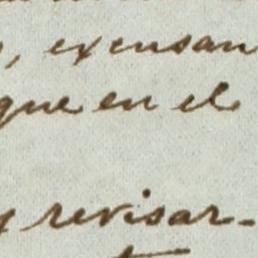 , excusan
que en el
y revisar-